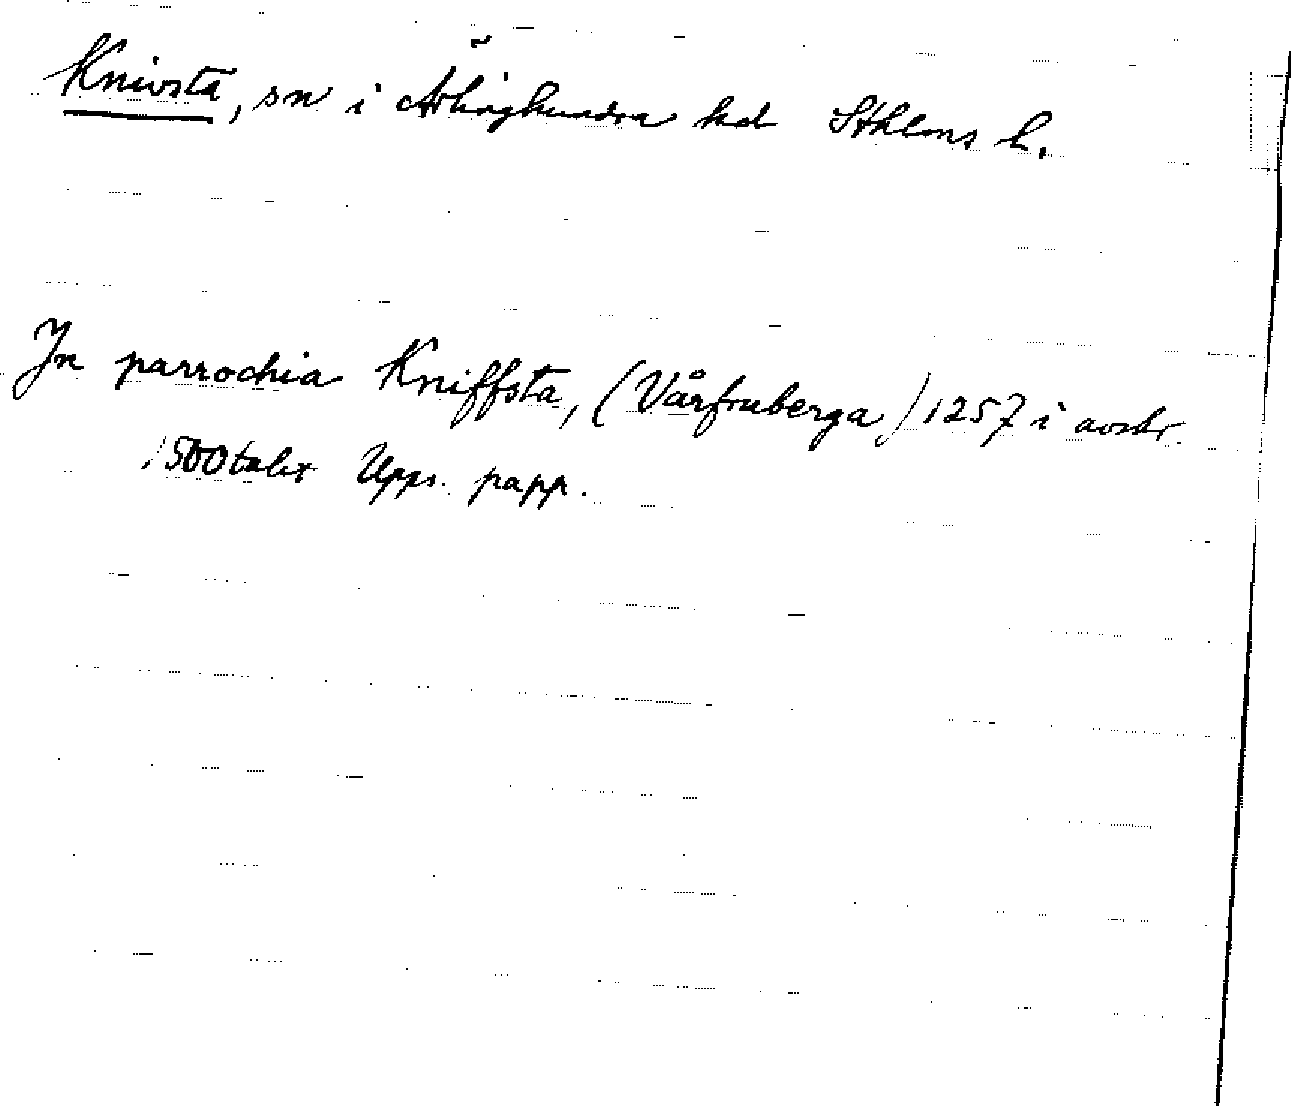 Knivsta, sn i Ärlinghundra hd Sthlms l.
In parrochia Kniffsta, (Vårfruberga) 1257 i avskr.
1500talet Upps. papp.